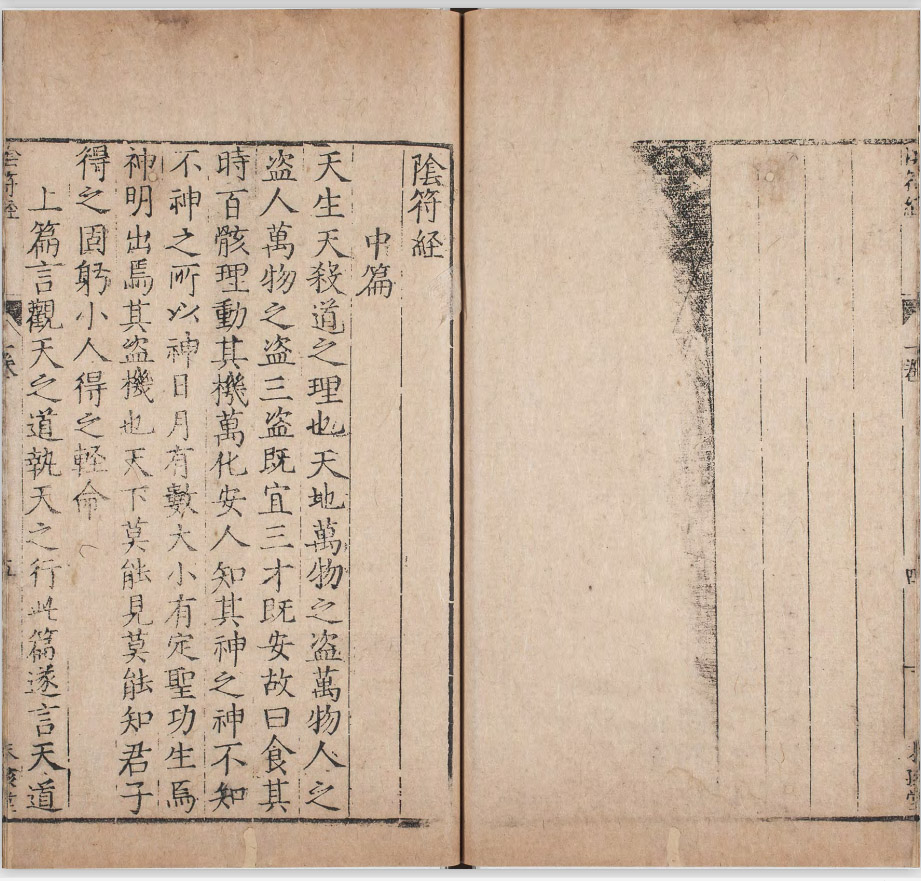 陰符経
中篇
天生天殺道之理也天地萬物之盗萬物人之
盗人萬物之盗三盗既宜三才既安故曰食其
時百骸理動其機萬化安人知其神之神不知
不神之所以神日月有數大小有定聖功生焉
神明出焉其盗機也天下莫能見莫能知君子
得之固躬小人得之軽命
上篇言觀天之道執天之行此篇遂言天道